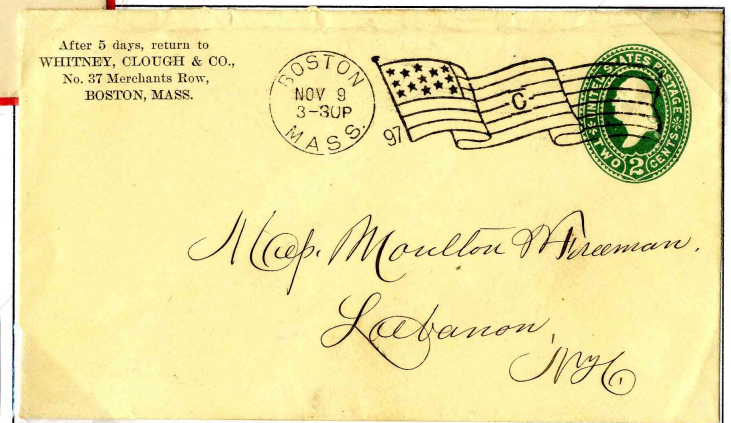 After 5 days, return to
WHITNEY, CLOUGH & CO.,
No. 37 Merchants Row,
BOSTON, MASS.
BOSTON
NOV 9
3-30P
MASS.
97
C
UNITED STATES POSTAGE
TWO 2 CENTS
Moulton & Freeman.
Lebanon,
N.H.